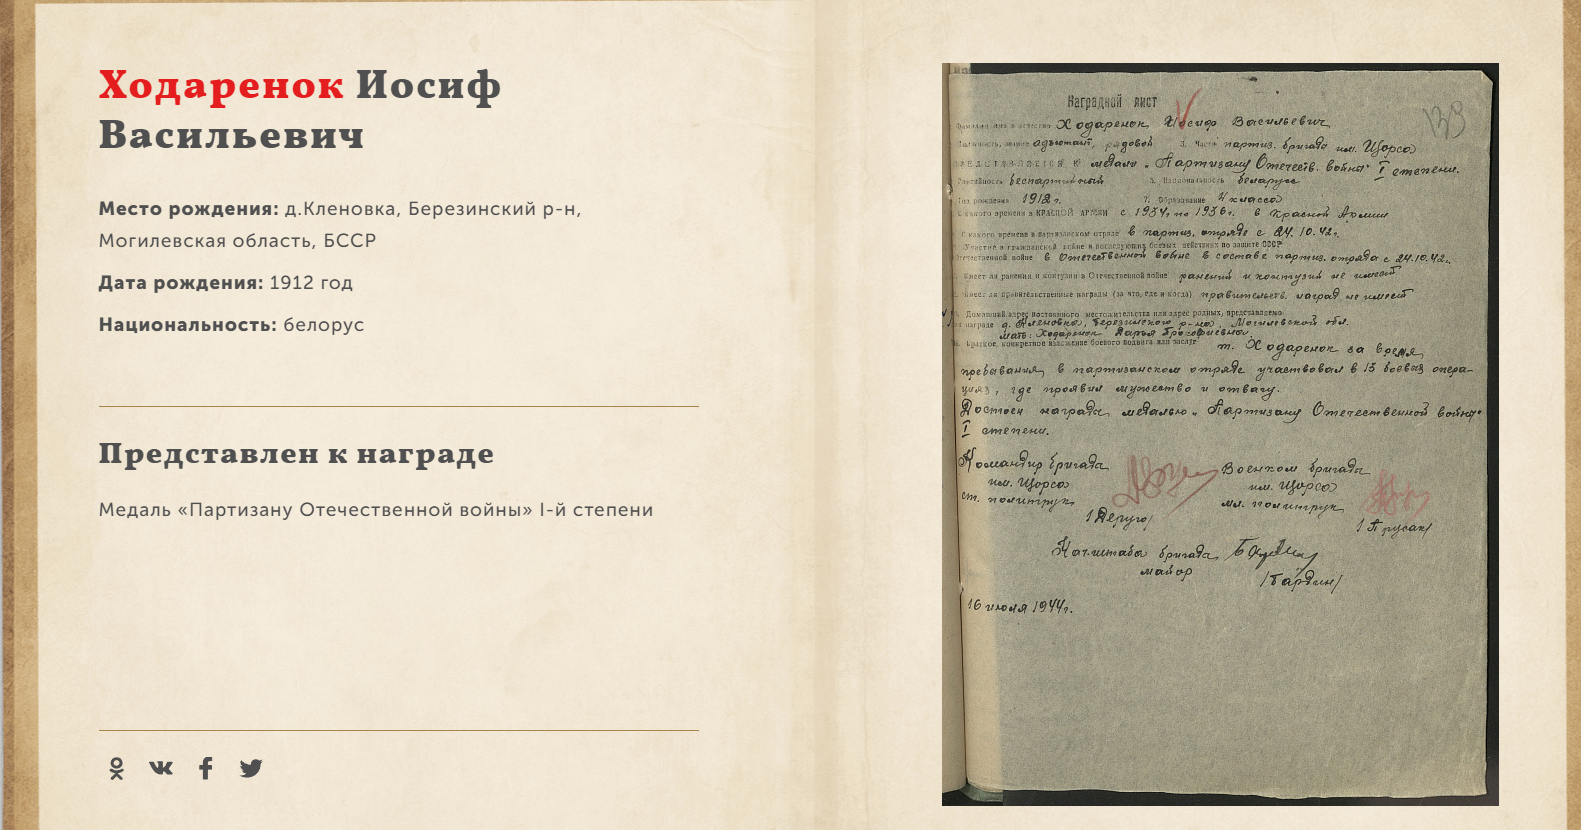 Ходаренок Иосиф
Васильевич
Место рождения: д.Кленовка, Березинский р-н,
Могилевская область, БССР
Дата рождения: 1912 год
Национальность: белорус
Представлен к награде
Медаль «Партизану Отечественной войны» I-й степени
Наградной лист
Фамилия имя и отчество Ходаренок Иосиф Васильевич
адъютант, рядовой 3. Часть партиз. бригада им. Щорса
ПРЕДСТАВЛЯЕТСЯ К медали „Партизану Отечеств. войны" I степени.
Партийность беспартийный 5. Национальность беларусс
Год рождения 1912 г. 7. Образование 4 класса
С какого времени в КРАСНОЙ АРМИИ с 1934 г. по 1936 г. в Красной Армии
С какого времени в партизанском отряде в партиз. отряде с 24.10.42г.
Участие в гражданской войне и последующих боевых действиях по защите СССР
Отечественной войне в Отечественной войне в составе партиз. отряда с 24.10.42г.
Имеет ли ранения и контузии в Отечественной войне ранений и контузий не имеет
Имеет ли правительственные награды (за что, где и когда) правительств. наград не имеет
Домашний адрес постоянного местожительства или адрес родных, представляемого
награде д. Кленовка, Березинского р-на, Могилевской обл.
мать: Ходаренок Дарья Трофимовна
Краткое, конкретное изложение боевого подвига или заслуг т. Ходаренок за время
пребывания в партизанском отряде участвовал в 13 боевых опера-
циях, где проявил мужество и отвагу.
Достоен награды медалью „Партизану Отечественной войны"
I степени.
Командир бригады Военком бригады
им. Щорса им. Щорса
ст. политрук мл. политрук
/Деруго/ /Прусак/
Нач. штаба бригады
майор /Бардин/
16 июля 1944г.